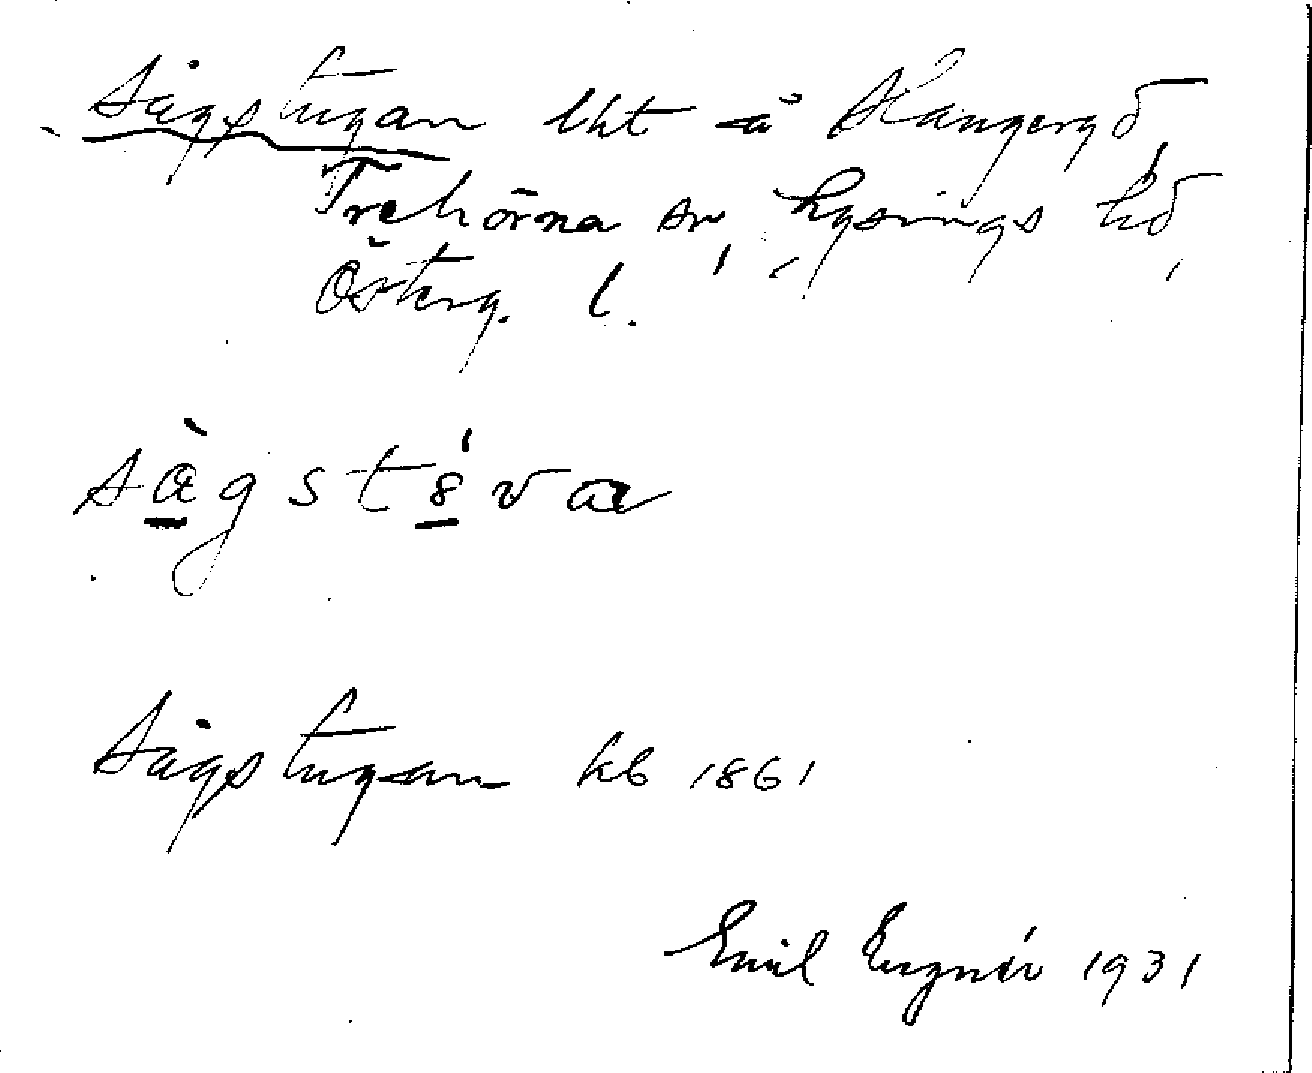 Sågstugan lht å Stangergd,
Trehörna sn, Lysings hd,
Österg. l.
sàgstȣ́va
Sågstugan kb 1861
Emil 1931